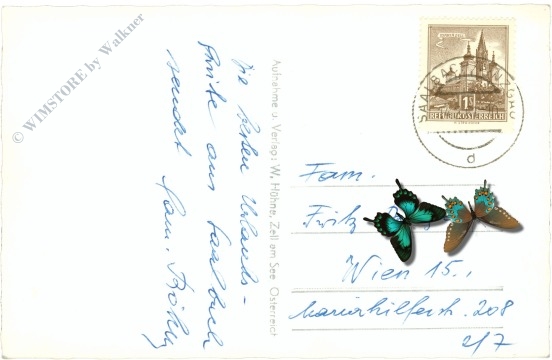 © WIMSTORE by Walkner
Die besten Urlaubs-
grüße aus Saalbach
sendet Fam.
Aufnahme u. Verlag: W. Höhne, Zell am See Österreich
MARIAZELL
1S
REPUBLIK ÖSTERREICH
SAALBACH
d
Fam.
Fritz
Wien 15.,
Mariahilferstr. 208
2/7